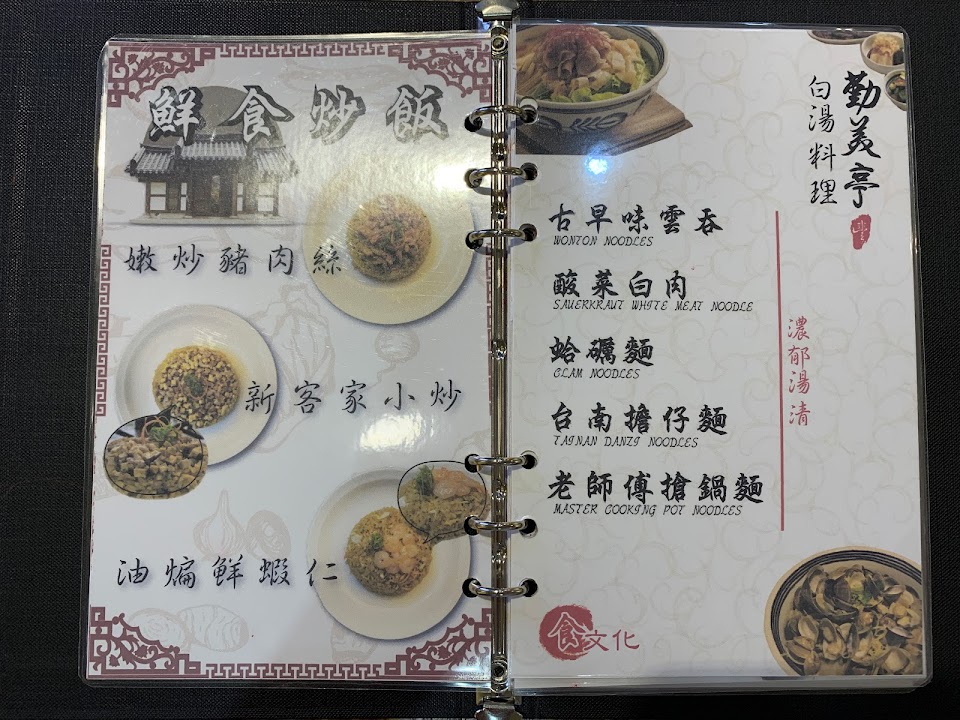 鮮食炒飯
嫩炒豬肉絲
新客家小炒
油煸鮮蝦仁
勤美亭
白湯料理
濃郁湯清
古早味雲吞
WONTON NOODLES
酸菜白肉
SAUERKRAUT WHITE MEAT NOODLE
蛤礪麵
CLAM NOODLES
台南擔仔麵
TAINAN DANZI NOODLES
老師傅搶鍋麵
MASTER COOKING POT NOODLES
食文化